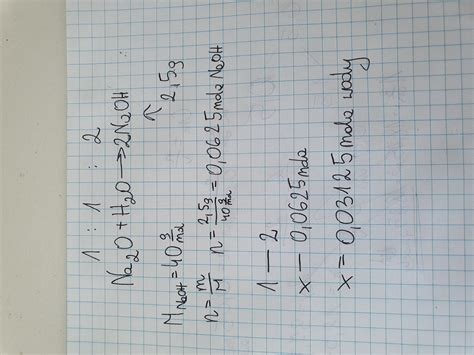 1 : 1 : 2
Na₂O + H₂O → 2NaOH
↖
2,5g
M_NaOH = 40 g/mol
n = m/M   n = 2,5g / 40 g/mol = 0,0625 mola NaOH
1 — 2
x — 0,0625 mola
x = 0,03125 mola wody